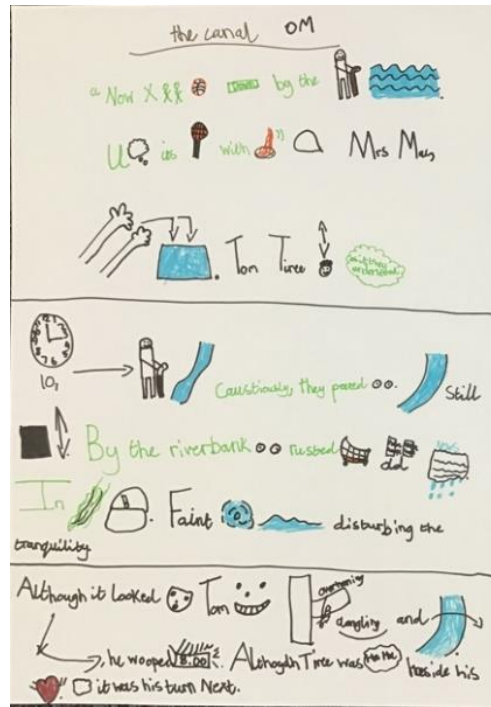 the canal OM
"Now by the
its with" Mrs May
Tom Tiree as if they understood
12 3 6
10,
Caustiously, they peered Still
By the riverbank rusted old
In Faint disturbing the
tranquility
Although it looked Tom overhanging
dangling and
, he wooped 8.00. Although Tiree was beside his
it was his turn Next.